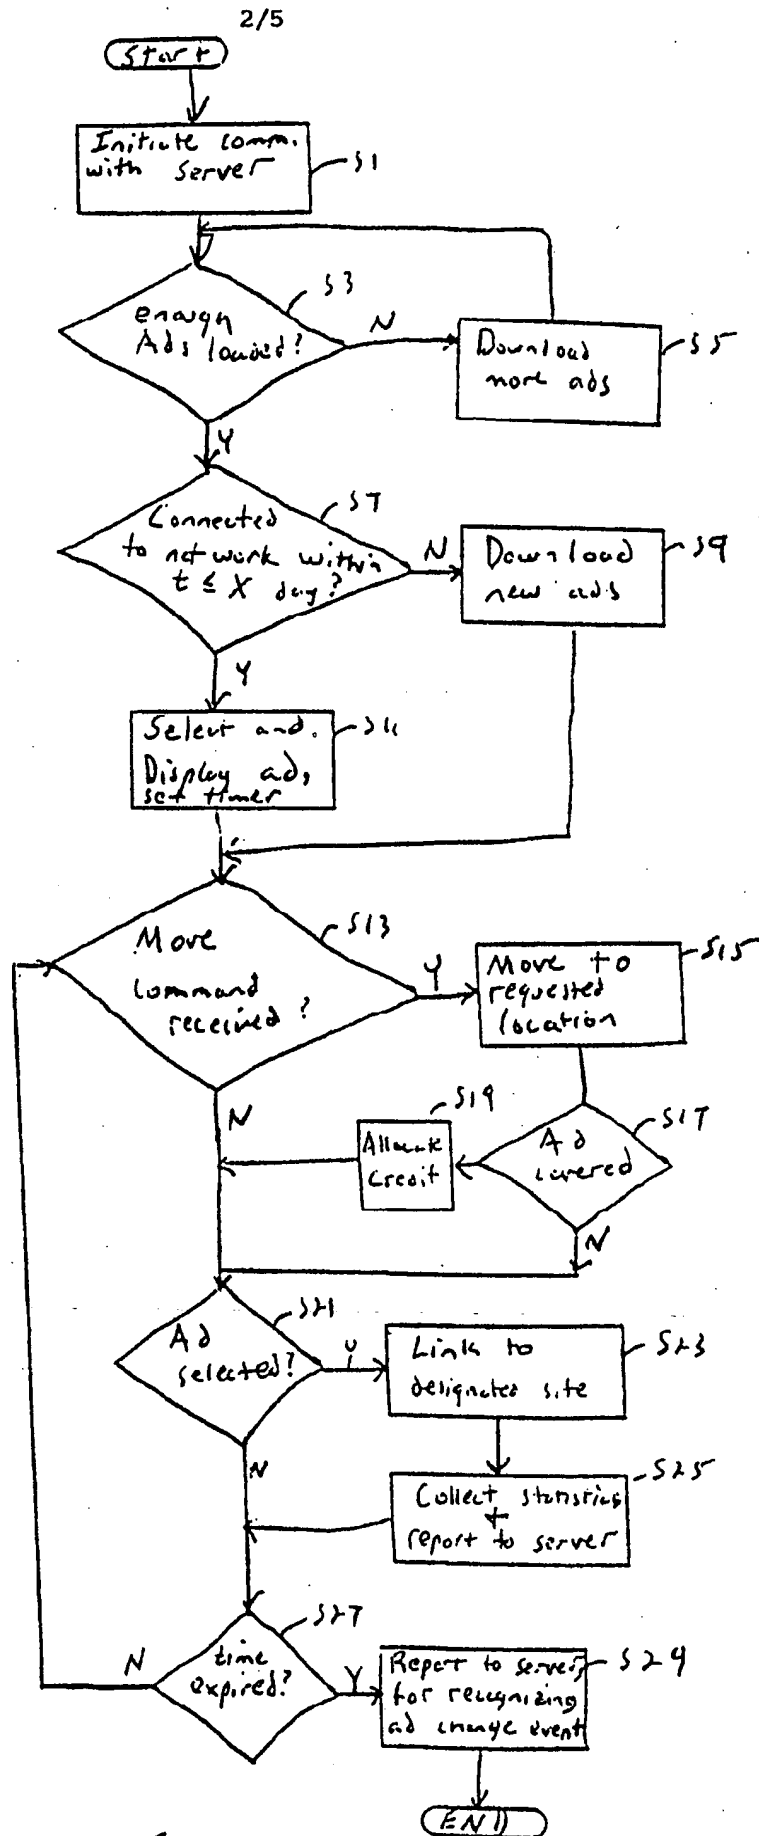 2/5
Start
Initiate comm.
with server
S1
S3
enough
Ads loaded?
N
Download
more ads
S5
Y
S7
Connected
to network within
t ≤ X day?
N
Download
new ads
S9
Y
Select and.
Display ad,
set timer
S11
S13
Move
command
received?
Y
Move to
requested
location
S15
N
S19
Allocate
Credit
S17
Ad
covered
N
S21
Ad
selected?
Y
Link to
designated site
S23
N
Collect statistics
+
report to server
S25
S27
time
expired?
N
Y
Report to server,
for recognizing
ad change event
S29
END